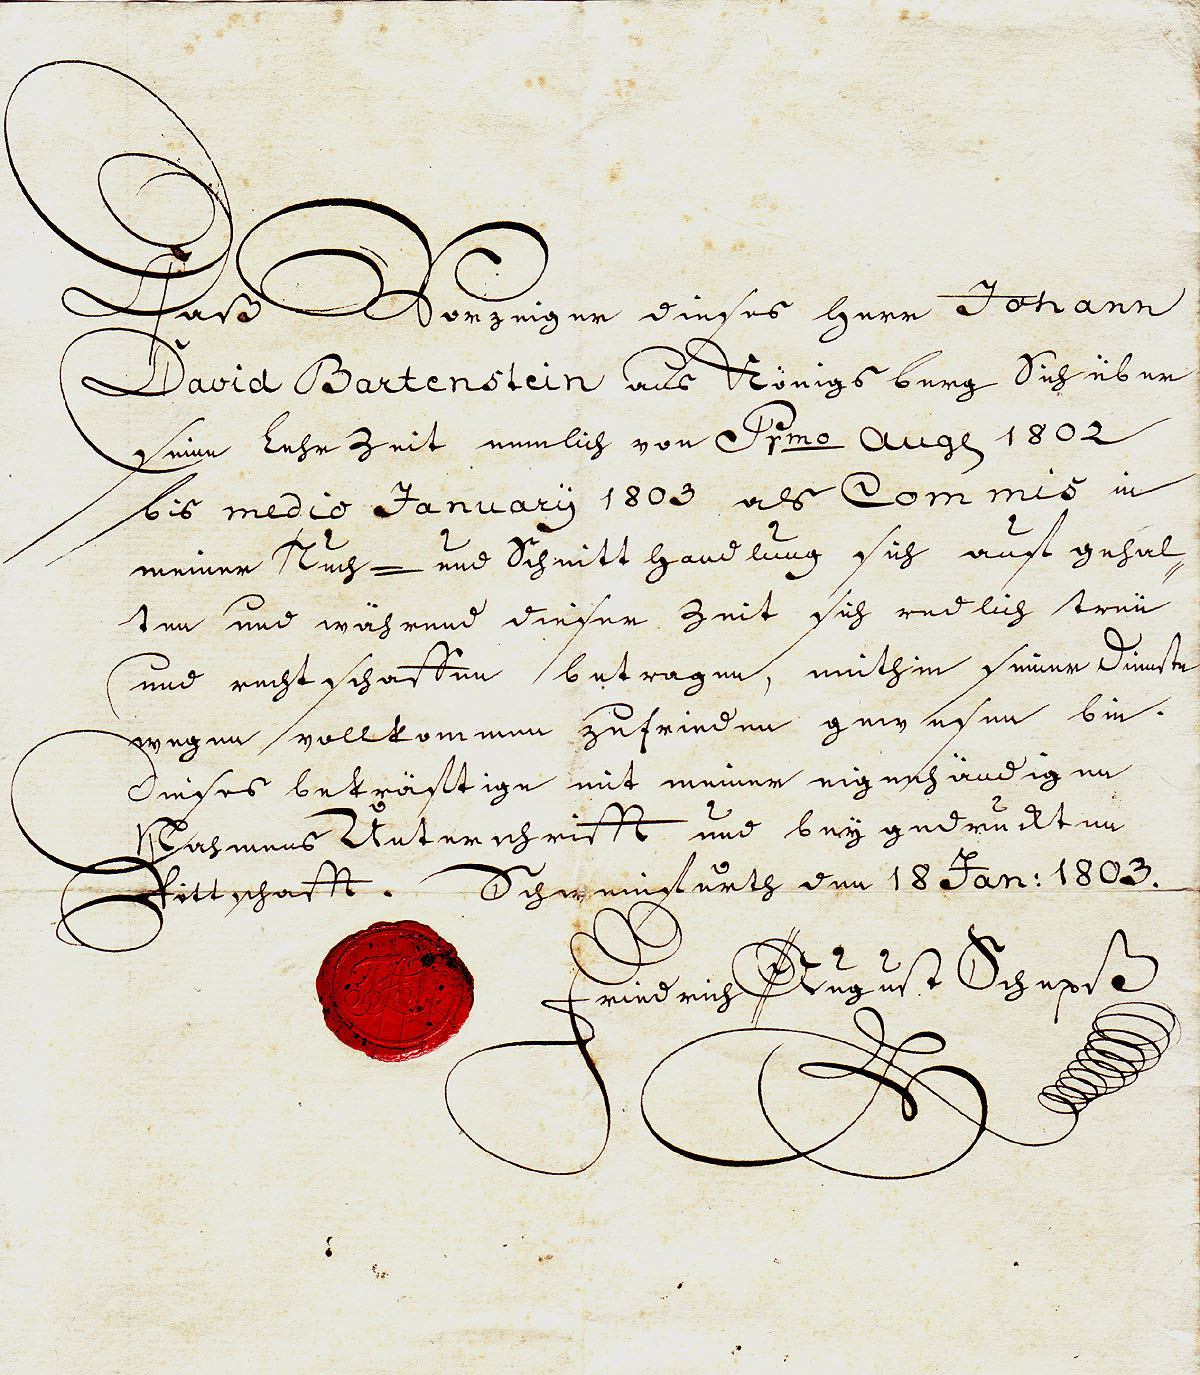 Daß Vorzeiger dieses Herr Johann
David Bartenstein aus Königsberg Sich über
seine Lehr Zeit nemlich von Prmo Aug 1802
bis medio Januarÿ 1803 als Commis in
meiner Tuch= und Schnitt Handlung sich auf gehal=
ten und während dieser Zeit sich redlich treü
und recht schaffen betragen, mithin seiner Dienste
wegen vollkommen zufrieden gewesen bin.
Dieses bekräftige mit meiner eigenhändigen
Nahmens Unterschrifft und beÿ gedruckten
Pittschafft. Schweinfurth den 18 Jan: 1803.
Friedrich August Schepß